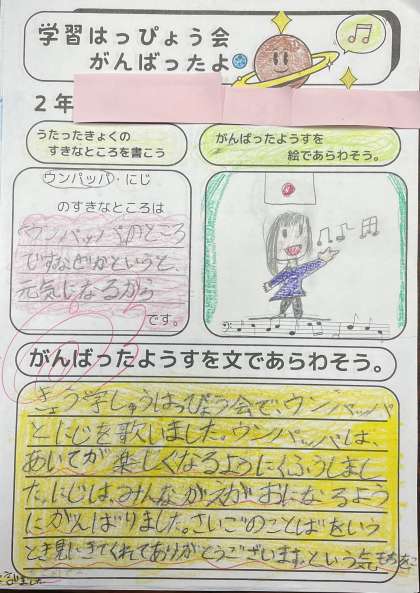 学習はっぴょう会
がんばったよ
2年
うたったきょくの
すきなところを書こう
がんばったようすを
絵であらわそう。
ウンパッパ・にじ
のすきなところは
ウンパッパのところ
ですなぜかというと、
元気になるから
です。
がんばったようすを文であらわそう。
きょう学しゅうはっぴょう会で、ウンパッパ
とにじを歌いました。ウンパッパは、
あいてが楽しくなるようにくふうしまし
た。にじは、みんながえがおになるよう
にがんばりました。さいごのことばをいう
とき見にきてくれてありがとうございます。という気もちを
めました